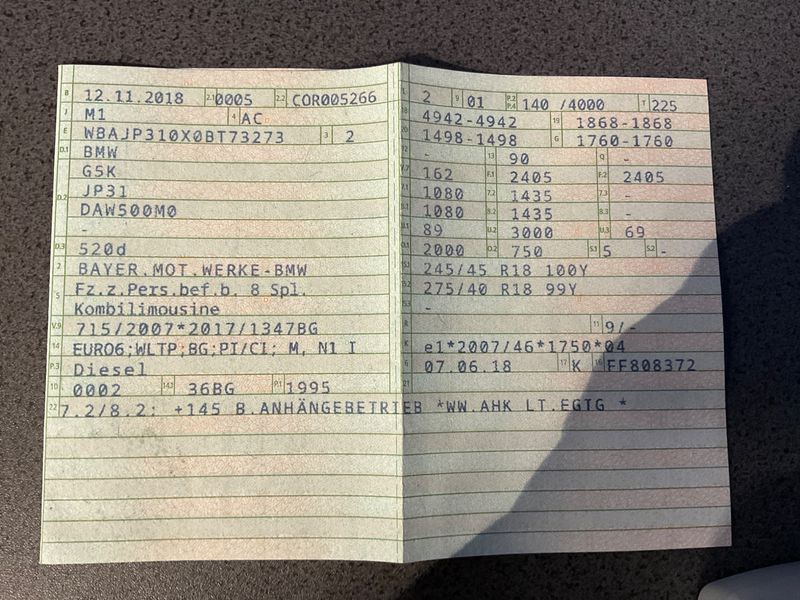 B 12.11.2018 2.1 0005 2.2 COR005266
J M1 4 AC
E WBAJP310X0BT73273 3 2
D.1 BMW
G5K
JP31
D.2 DAW500M0
-
D.3 520d
2 BAYER.MOT.WERKE-BMW
5 Fz.z.Pers.bef.b. 8 Spl.
Kombilimousine
V.9 715/2007*2017/1347BG
14 EURO6;WLTP;BG;PI/CI; M, N1 I
P.3 Diesel
10 0002 14.1 36BG P.1 1995
22 7.2/8.2: +145 B.ANHÄNGEBETRIEB *WW.AHK LT.EGTG *
L 2 9 01 P.2 P.4 140 /4000 T 225
18 4942-4942 19 1868-1868
20 1498-1498 G 1760-1760
12 - 13 90 Q -
V.7 162 F.1 2405 F.2 2405
7.1 1080 7.2 1435 7.3 -
8.1 1080 8.2 1435 8.3 -
U.1 89 U.2 3000 U.3 69
O.1 2000 O.2 750 S.1 5 S.2 -
15.1 245/45 R18 100Y
15.2 275/40 R18 99Y
15.3 -
R 11 9/-
K e1*2007/46*1750*04
6 07.06.18 17 K 16 FF808372
21